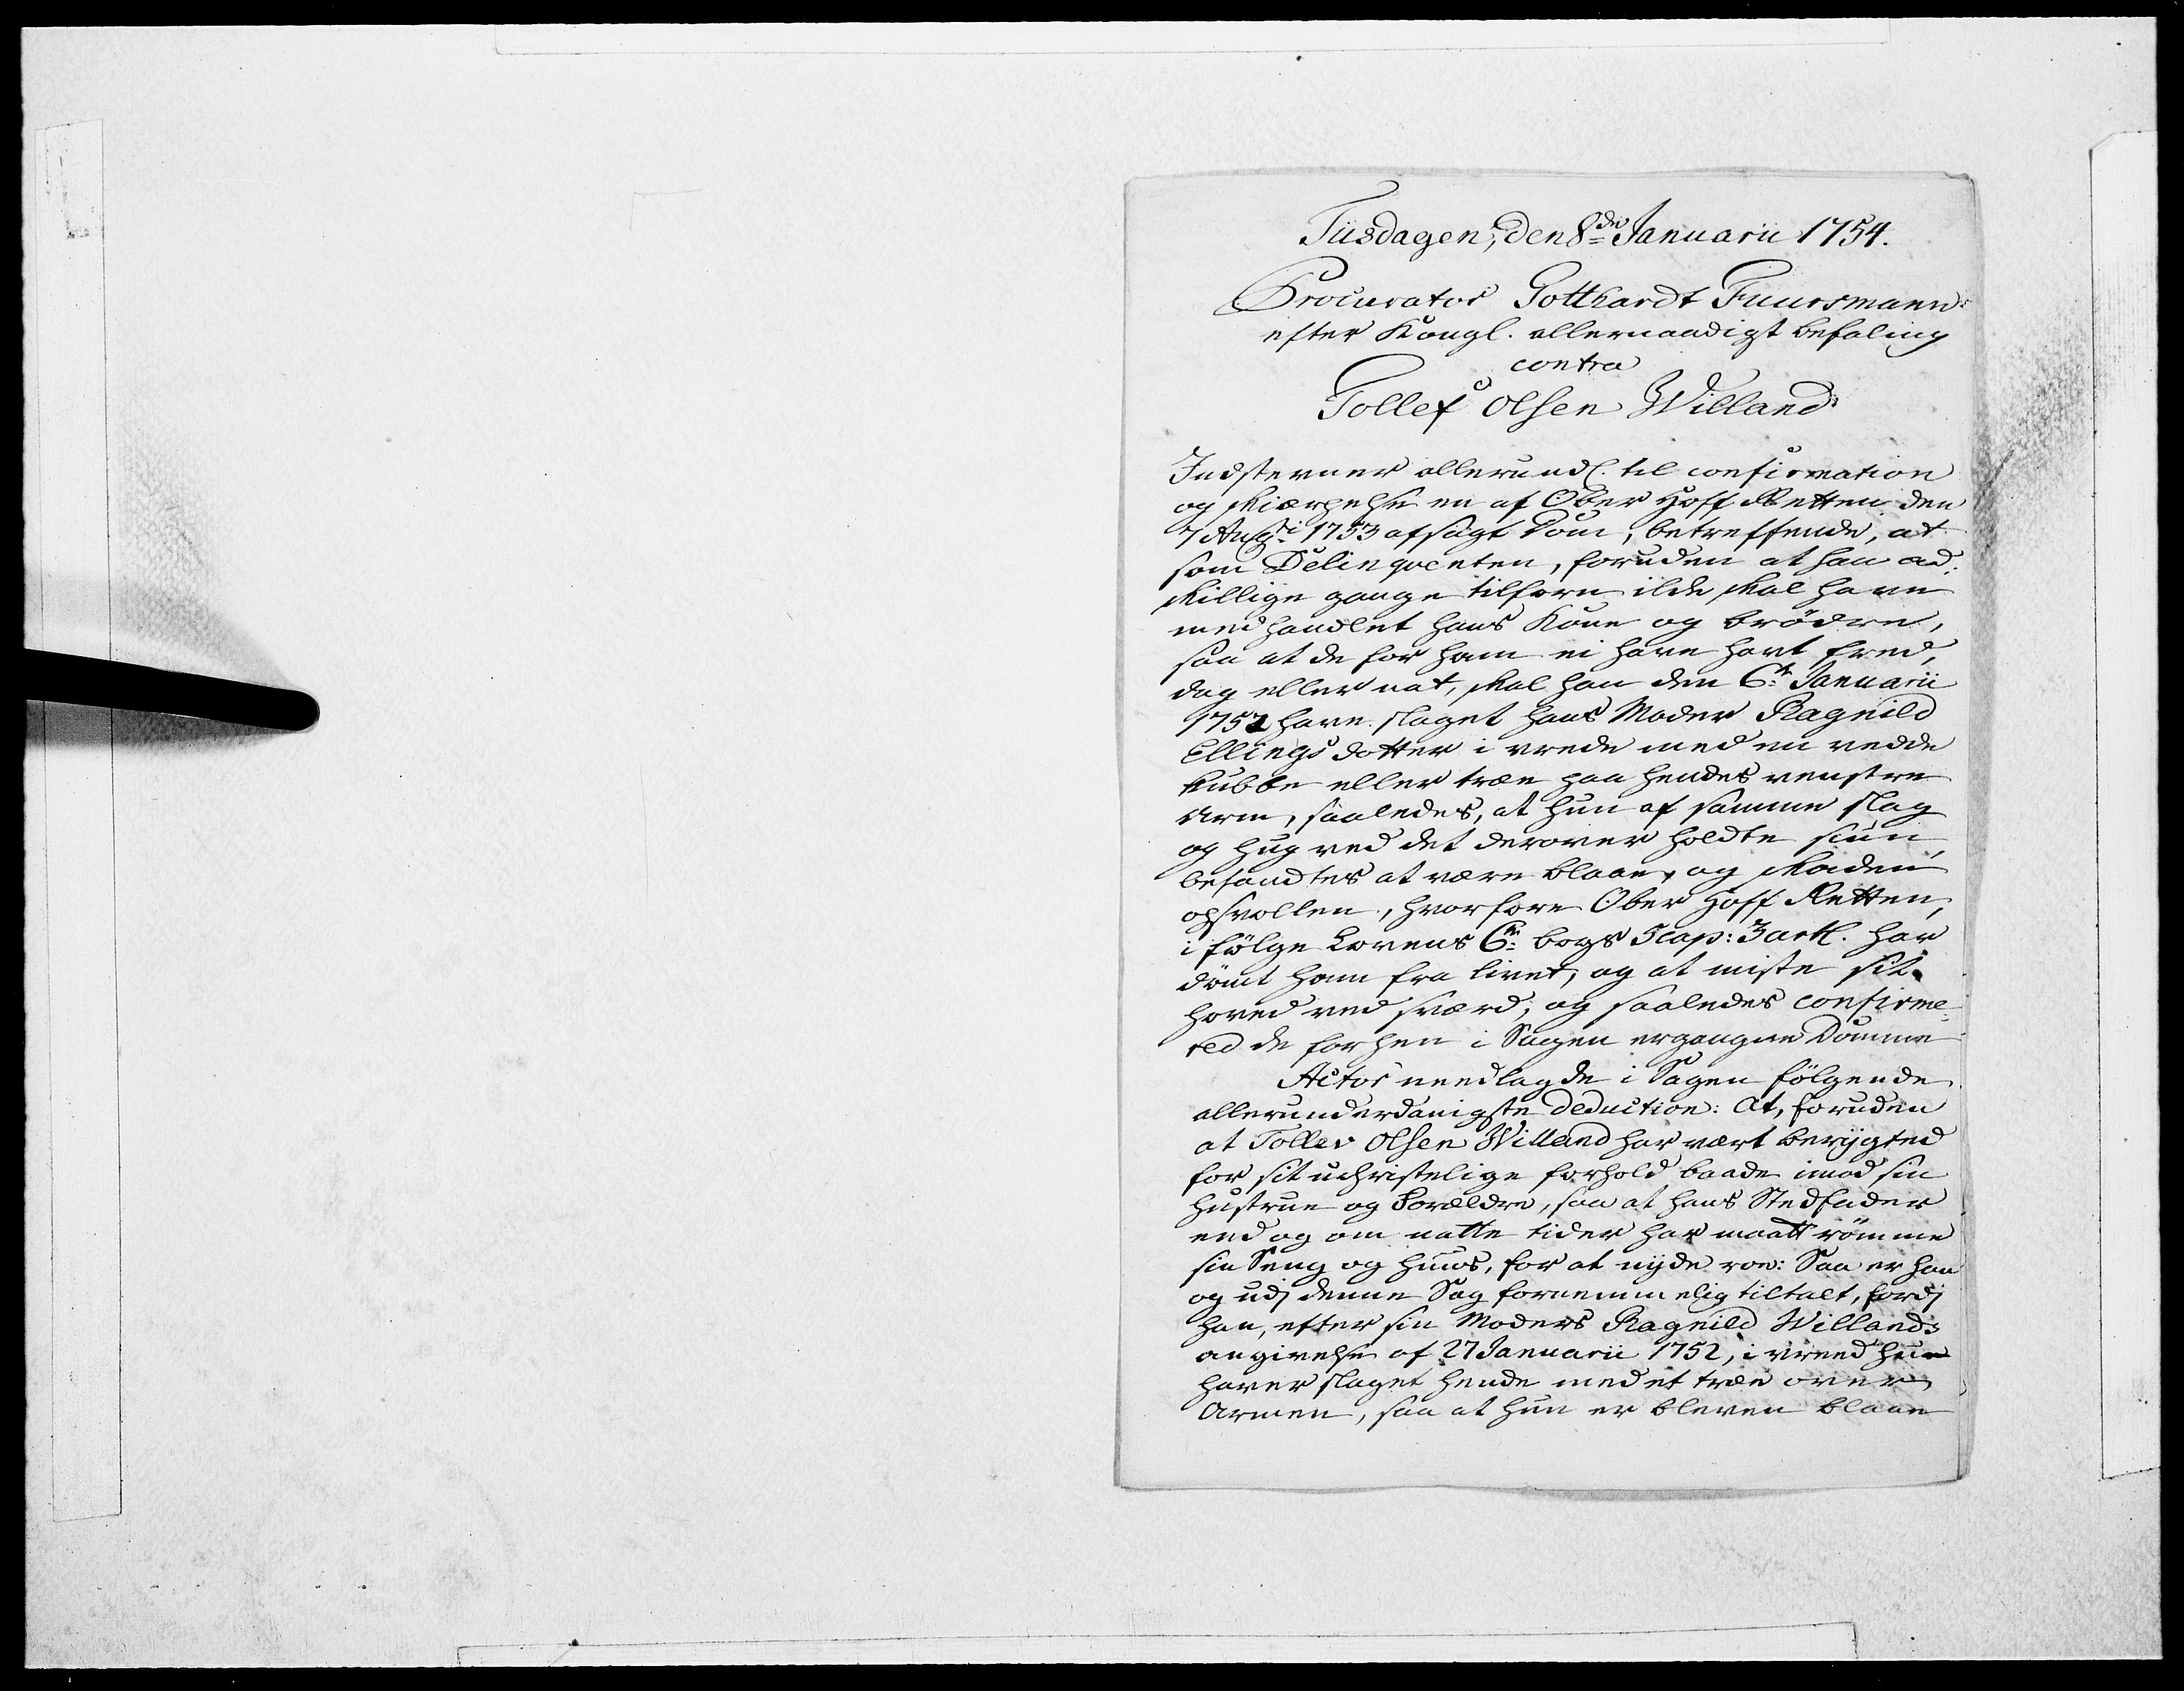 Tiisdagen, den 8de Januarii 1754.
Procurator Gotthardt Fuursmann
efter Kongl. allernaadigst befaling
contra
Tollef Olsen Willand
Indstevner allerundl. til confirmation
og skiærpelse en af Ober Hoff Retten den
7 Augti 1753 afsagt Dom, betreffende, at
som Delinqventen, foruden at han ad-
skillige gange tilforn ilde skal have
medhandlet hans Kone og brødre,
saa at de for ham ei have havt fred,
dag eller nat, skal han den 6te Januarii
1752 have slaget hans Moder Ragnild
Ellings dotter i vrede med en vedde
kubbe eller træe paa hendes venstre
Arm, saaledes, at hun af samme slag
og hug ved det derover holdte siun,
befandtes at være blaae, og skaden
opsvollen, hvorfore Ober Hoff Retten,
i følge Lovens 6te bogs 5 cap: 3 artl. har
dømt ham fra livet, og at miste sit
hoved ved sværd, og saaledes confirme-
red de forhen i Sagen ergangne Domme
Actor needlagde i Sagen følgende
allerunderdanigste deduction: At, foruden
at Tollev Olsen Willand har vært berygted
for sit uchristelige forhold baade imod sin
hustrue og Forældre, saa at hans Stedfader
end og om natte tider har maatt rømme
sin Seng og huus, for at nyde roe: Saa er han
og udj denne Sag fornemmelig tiltalt, fordj
han, efter sin Moders Ragnild Willands
angivelse af 27 Januarii 1752, i vreed hue
haver slaget hende med et træe over
Armen, saa at hun er bleven blaae